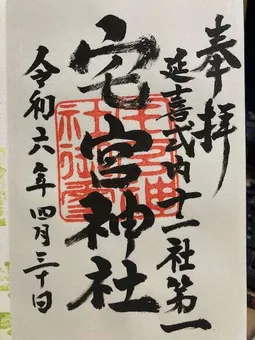 奉拝
延喜式内十一社第一
宅宮神社
令和六年四月三十日